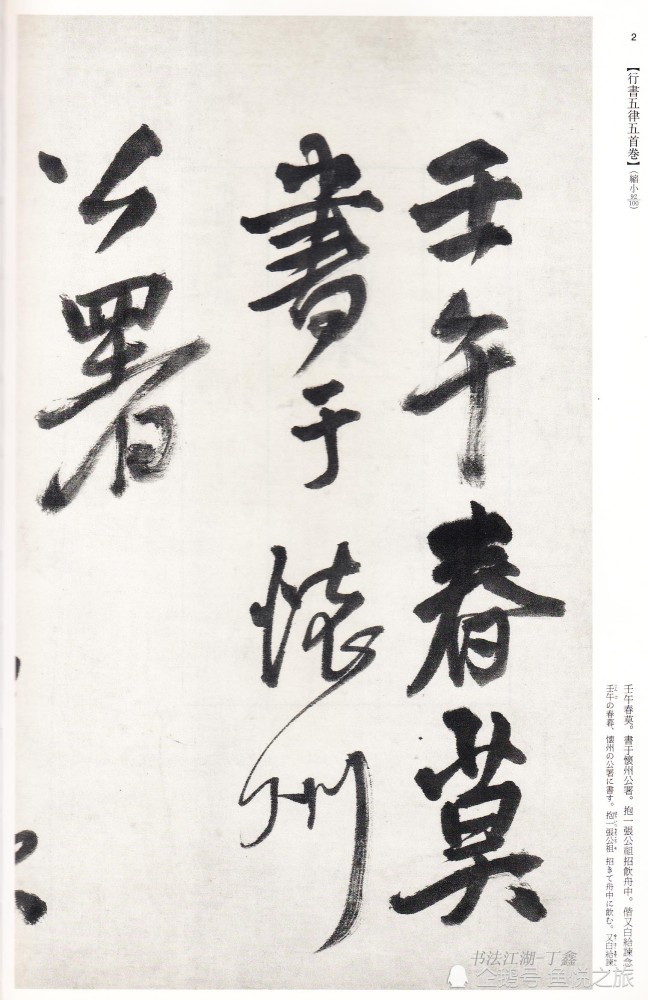 2
【行書五律五首巻】(縮小92/100)
壬午春莫
書于懷州
公署
壬午春莫。書于懷州公署。抱一張公祖招飲舟中。偕又白給諫念
壬午の春暮、懷州の公署に書す。抱一張公祖 招きて舟中に飲む。又白給諫
书法江湖-丁鑫
企鹅号 鱼悦之旅